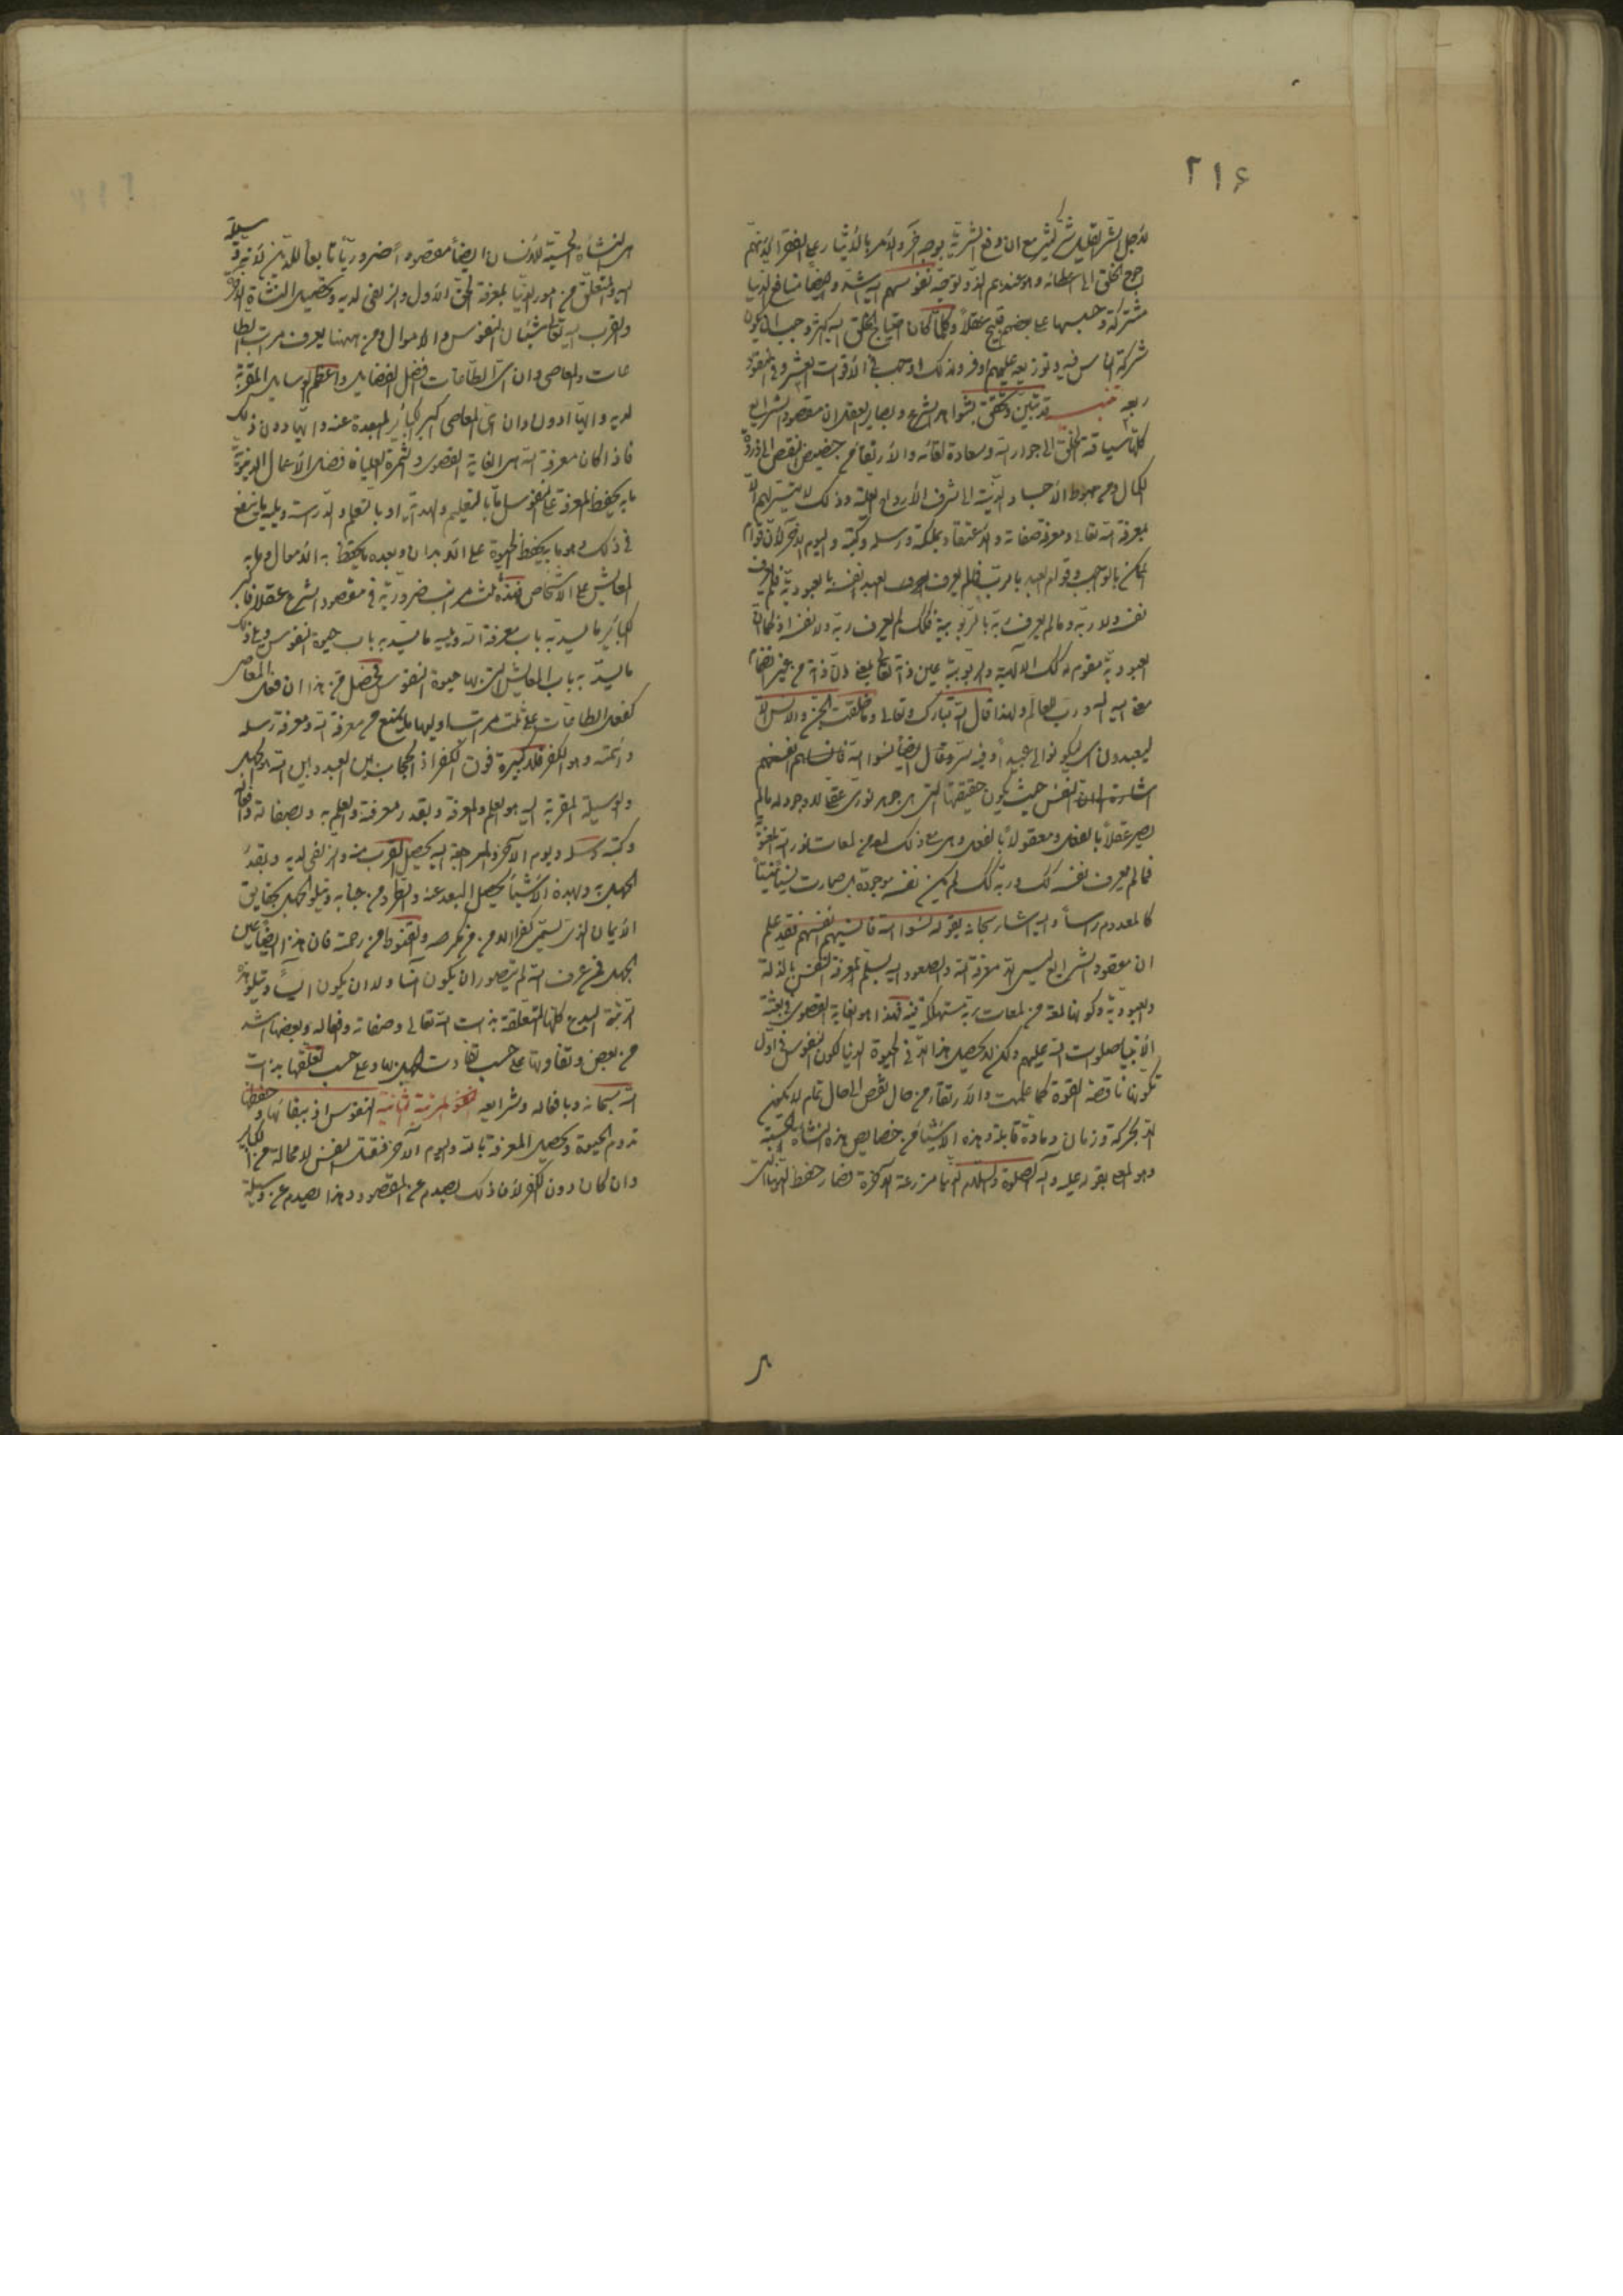 ٢١٤
لاجل الشر القليل شر كثير مع ان وقع الشرية بوجه آخر والامر بالايثار على الفقراء لانهم
احوج الخلق الى اعطائه وهو عندهم الذ وتوجه نفوسهم اليه اشد وايضا منافع الدنيا
مشتركة وحبسها على بعضهم قبيح عقلاً وكلما كان احتياج الخلق اليه اكثر وجب ان يكون
شركة الناس فيه وتوزيعه عليهم اوفر ولذلك اوجب في الاقوات العشر وفي النقود
ربعه تنبيه قد تبين وتحقق بشواهد الشرع وبصاير العقل ان مقصود الشرايع
كلها سياقة الخلق الى جوار الله وسعادة لقائه والارتقاء من حضيض النقص الى ذروة
الكمال ومن هبوط الاجساد الدنية الى شرف الارواح العلية وذلك لا يتيسر لهم الا
بمعرفة الله تعالى ومعرفة صفاته والاعتقاد بملائكته ورسله وكتبه واليوم الآخر لان قوام
الممكن بالواجب وقوام العبد بالرب فلم يعرف العبد نفسه بالعبودية فلم يعرف
نفسه ولا ربه وما لم يعرف ربه بالربوبية فكذلك لم يعرف ربه ولا نفسه اذ كما ان
العبودية مقومة له كذلك الالهية والربوبية عين ذاته تعالى بمعنى ان ذاته من غير انضمام
معنى اليه اله ورب العالم ولهذا قال الله تبارك وتعالى وما خلقت الجن والانس الا
ليعبدون اي ليكونوا لي عبيداً وفيه سر وقال ايضاً نسوا الله فانساهم انفسهم
اشارة الى ان النفس حيث يكون حقيقتها التي هي جوهر نوري عقلي لا وجود له ما لم
يصر عقلاً بالفعل ومعقولاً بالفعل وهي مع ذلك لمعة من لمعات نور الله المعنوية
فما لم يعرف نفسه كذلك وربه كذلك لم يكن نفسه موجودة بل صارت نسياً منسياً
كالمعدوم رأساً واليه اشار سبحانه بقوله نسوا الله فانسيهم انفسهم فقد علم
ان مقصود الشرايع ليس الا معرفة الله والصعود اليه بسلم معرفة النفس بالذلة
والعبودية وكونها لمعة من لمعات ربه مستهلكة فيه فهذا هو الغاية القصوى في بعثة
الانبياء صلوات الله عليهم ولكن لا يحصل هذا الا في الحيوة الدنيا لكون النفوس في اول
تكونها ناقصة بالقوة كما علمت والارتقاء من حال نقص الى حال تمام لا يكون
الا بحركة وزمان ومادة قابلة وهذه الاشياء من خصايص هذه النشأة الحسية
وهو المعنى بقوله عليه وآله الصلوة والسلام الدنيا مزرعة الآخرة فصار حفظ الدنيا التي
هي النشأة الحسية للانسان ايضاً مقصوداً ضرورياً تابعاً للدين لانه وسيلة
اليه والمتعلق من امور الدنيا بمعرفة الحق الاول والزلفى لديه وتحصيل النشأة الآخرة
والقرب اليه تعالى شيئان النفوس والاموال ومن ههنا يعرف مراتب الطا
عات والمعاصي وان اي الطاعات افضل الفضايل واعظم الوسايل المقربة
لديه وايها ادون وان اي المعاصي اكبر الكبائر المبعدة عنه وايها دون ذلك
فاذا كان معرفة الله هي الغاية القصوى والثمرة العليا فافضل الاعمال الدنيوية
ما به يحفظ المعرفة على النفوس اما بالتعليم والهداية او بالتعلم والدراسة ويليه ما ينفع
في ذلك وهو ما به يحفظ الحيوة على الابدان وبعده ما يحفظ به الاموال وما به
المعايش على الاشخاص فهذه ثلث مراتب ضرورية في مقصود الشرع عقلا فاكبر
الكبائر ما يسد به باب معرفة الله ويليه ما يسد به باب حيوة النفوس ويلي ذلك
ما يسد به باب المعايش التي بها حيوة النفوس فحصل من هذا ان فعل المعاصي
كفعل الطاعات على ثلث مراتب اوليها ما يمنع من معرفة الله ومعرفة رسله
وائمته وهو الكفر فلا كبيرة فوق الكفر اذ الحجاب بين العبد وبين الله هو الجهل
والوسيلة المقربة اليه هو العلم والمعرفة وبقدر معرفته والعلم به وبصفاته وافعاله
وكتبه ورسله ويوم الآخر والمراجعة اليه يحصل القرب منه والزلفى لديه وبقدر
الجهل به وبهذه الاشياء يحصل البعد عنه والطرد من جنابه ويتلو الجهل بحقايق
الايمان الذي تسمى كفراً الامن من مكر الله والقنوط من رحمته فان هذا ايضاً عين
الجهل فمن عرف الله لم يتصور ان يكون آمنا ولا ان يكون آيساً ويتلو هذه
الرتبة البدع كلها المتعلقة بذات الله تعالى وصفاته وافعاله وبعضها اشد
من بعض وتفاوتها على حسب تفاوت الجهل بها وعلى حسب تعلقها بذات
الله سبحانه وبافعاله وشرايعه المرتبة الثانية النفوس اذ ببقائها وحفظها
تدوم الحيوة وتحصل المعرفة بالله واليوم الآخر فقتل النفس لا محالة من الكباير
وان كان دون الكفر لان ذلك يصدم عن المقصود وهذا يصدم عن وسيلة